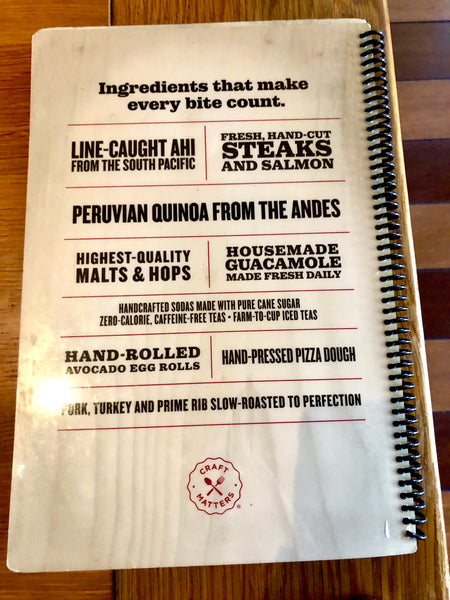 Ingredients that make
every bite count.
LINE-CAUGHT AHI
FROM THE SOUTH PACIFIC
FRESH, HAND-CUT
STEAKS
AND SALMON
PERUVIAN QUINOA FROM THE ANDES
HIGHEST-QUALITY
MALTS & HOPS
HOUSEMADE
GUACAMOLE
MADE FRESH DAILY
HANDCRAFTED SODAS MADE WITH PURE CANE SUGAR
ZERO-CALORIE, CAFFEINE-FREE TEAS • FARM-TO-CUP ICED TEAS
HAND-ROLLED
AVOCADO EGG ROLLS
HAND-PRESSED PIZZA DOUGH
PORK, TURKEY AND PRIME RIB SLOW-ROASTED TO PERFECTION
CRAFT
MATTERS
®